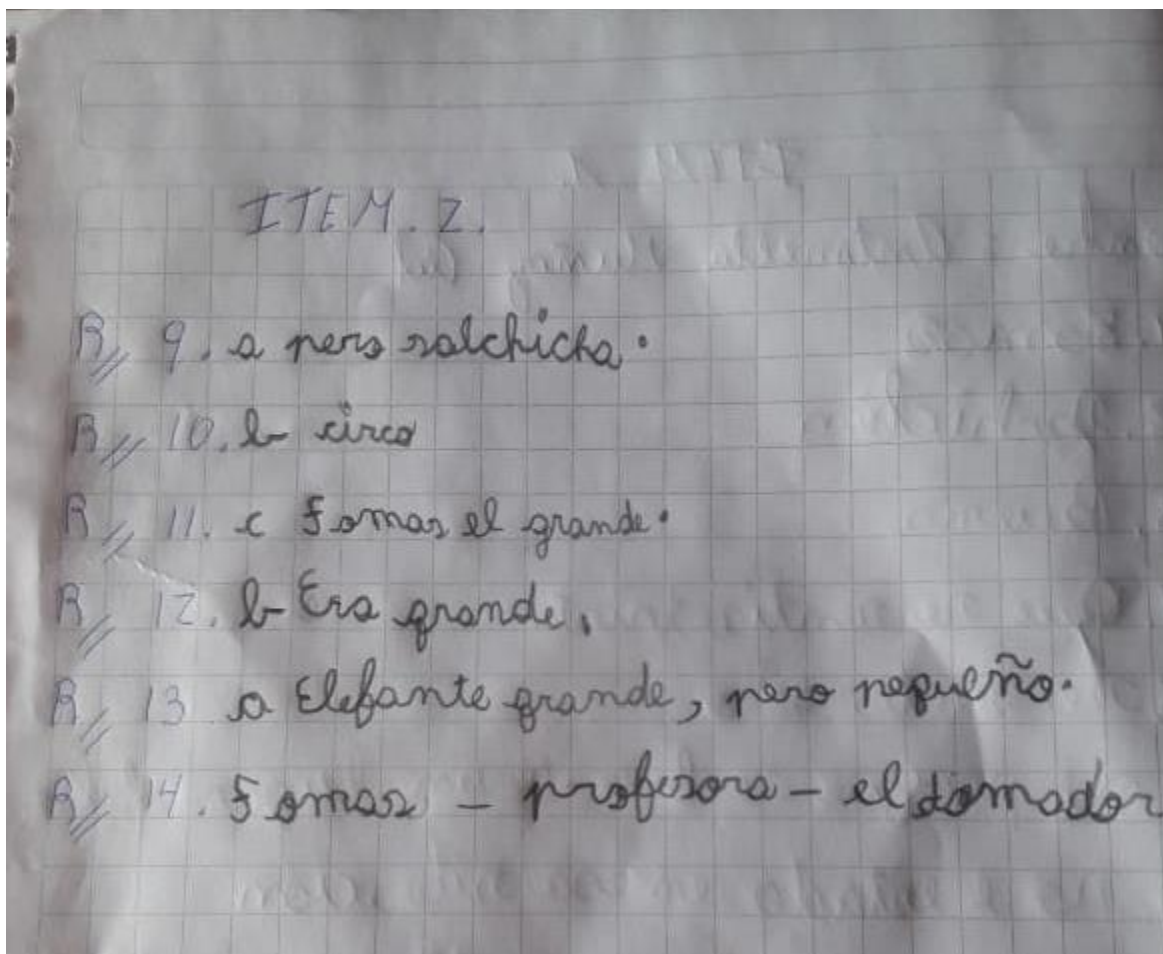 ITEM. 2.
R// 9. a pero salchicha.
R// 10. b- circo
R// 11. c Tomas el grande.
R// 12. b- Era grande.
R// 13 a Elefante grande, pero pequeño.
R// 14. Tomas - profesora - el domador